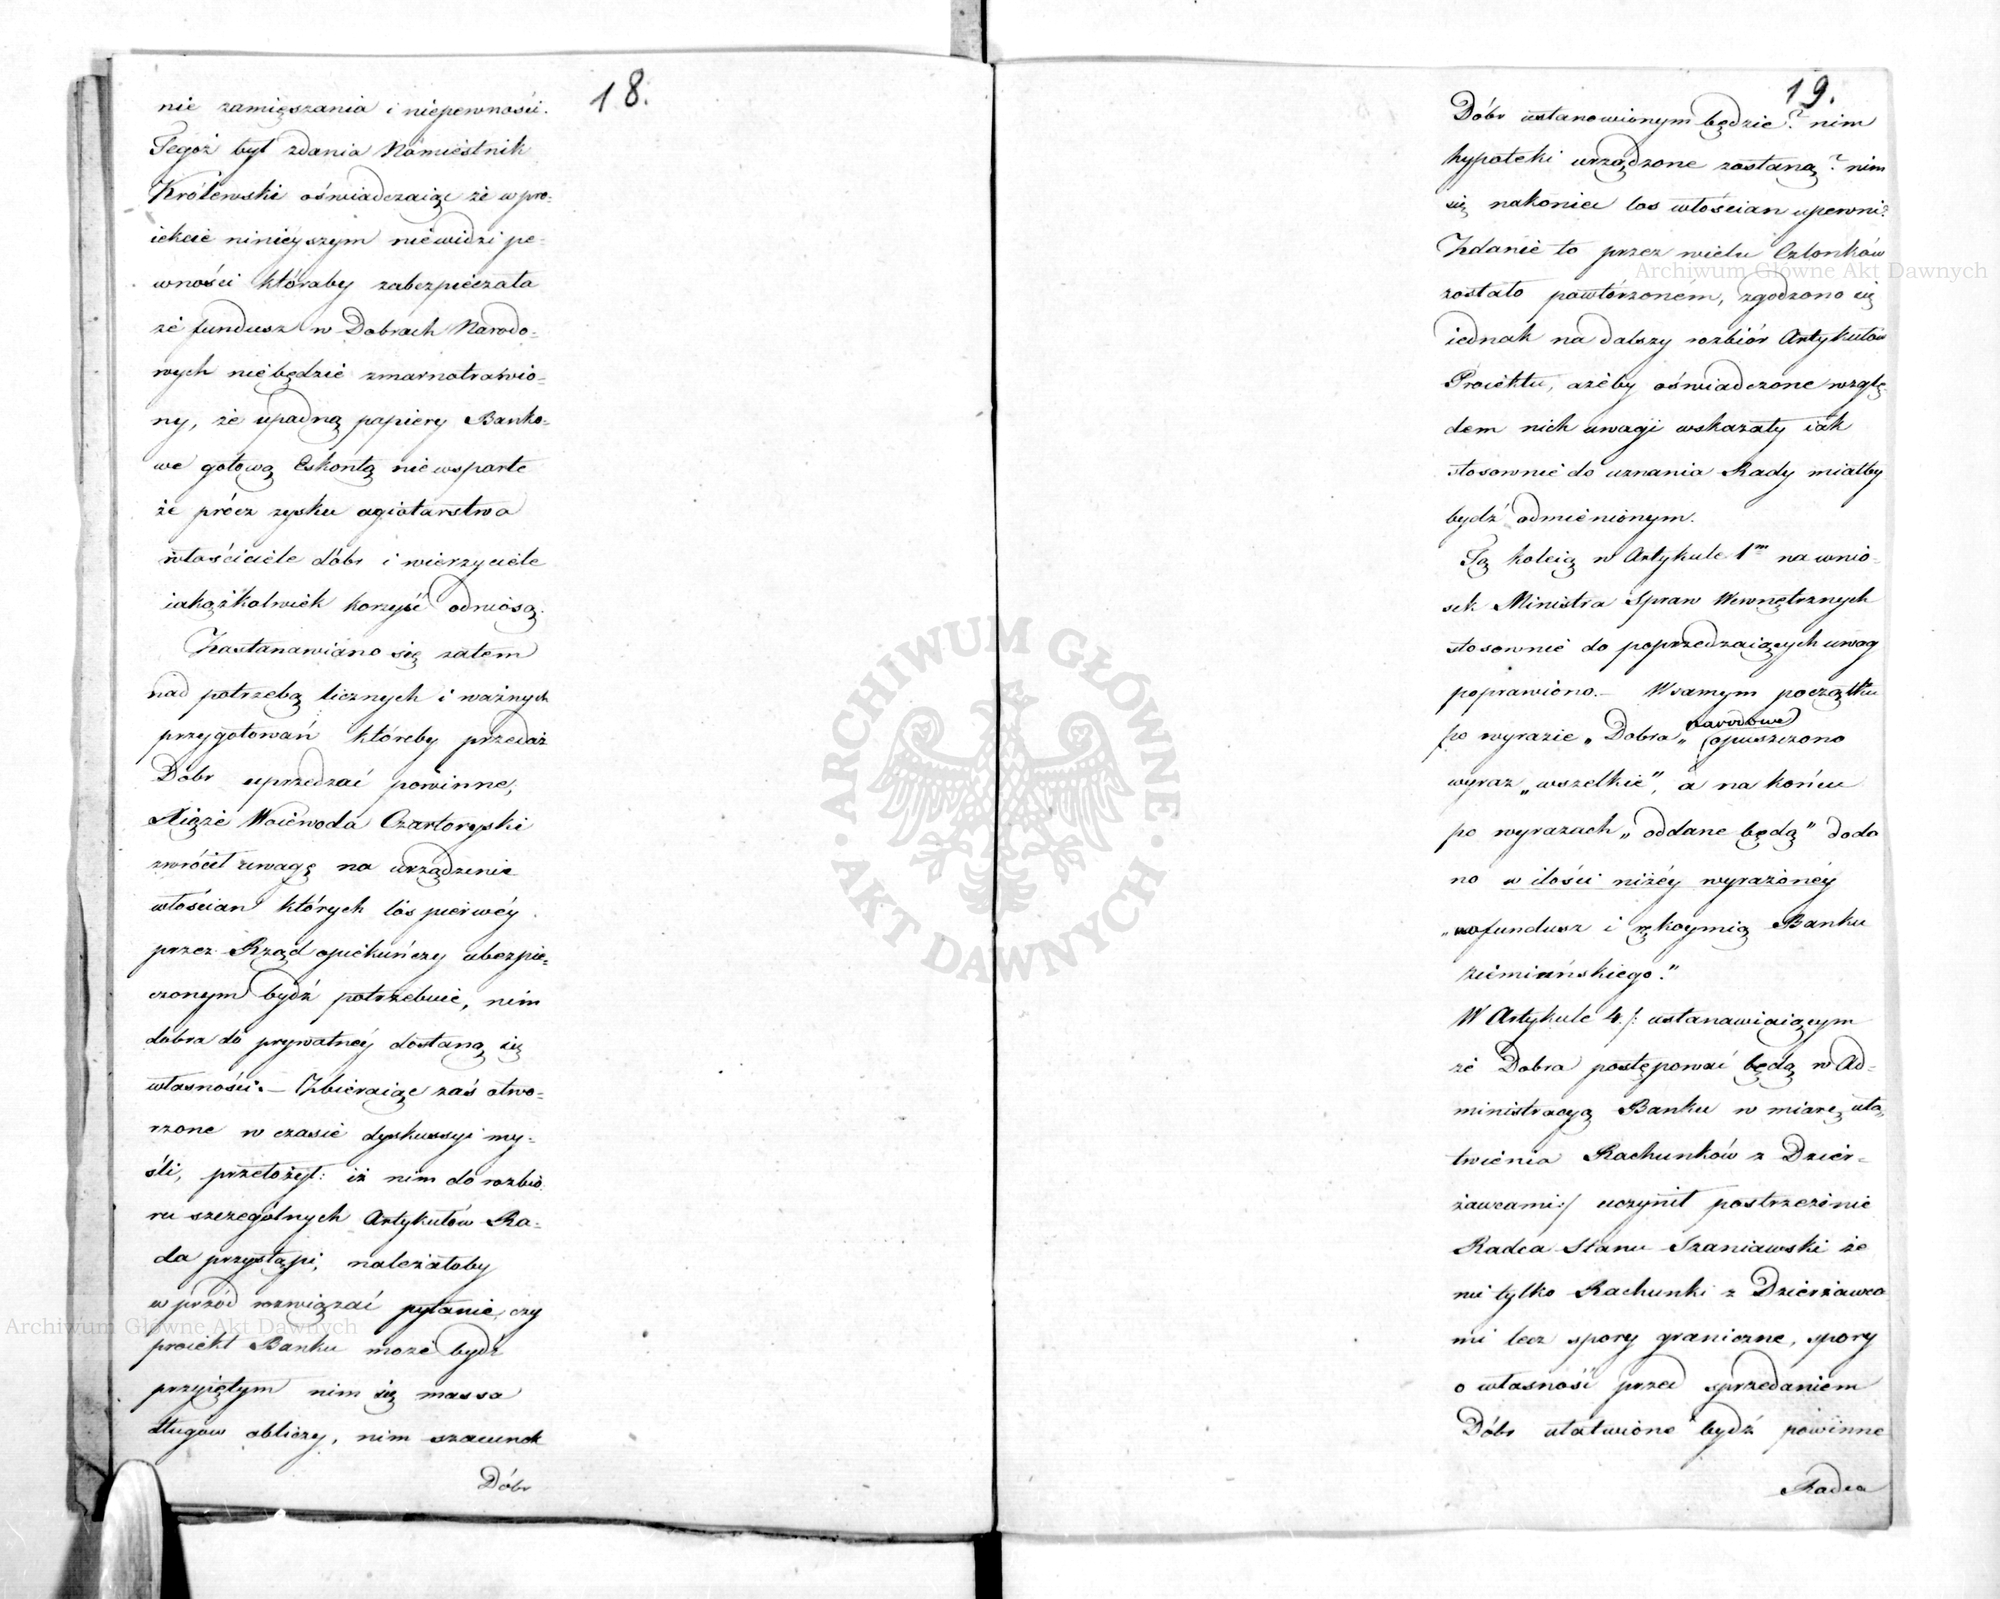 18.
nie zamięszania i niepewności.
Tegoż był zdania Namiestnik
Królewski oświadczaiąc że w pro-
iekcie ninieyszym niewidzi pe-
wności któraby zabezpieczała
że fundusz w Dobrach Narodo-
wych niebędzie zmarnotrawio-
ny, że upadną papiery Banko-
we gotową Eskontą niewsparte
że prócz zysku agiotarstwa
właściciele dóbr i wierzyciele
iakążkolwiek korzyść odniosą.
Zastanawiano się zatem
nad potrzebą licznych i ważnych
przygotowań któreby przedaż
Dobr uprzedzać powinne,
Xiąże Woiewoda Czartoryski
zwrócił uwagę na urządzenie
włościan których los pierwéy
przez Rząd opiekuńczy ubezpie-
czonym bydź potrzebuie, nim
dobra do prywatnéy dostaną się
własności. — Zbieraiąc zaś otwo-
rzone w czasie dyskussyi my-
śli, przełożył: iż nim do rozbio
ru szczególnych Artykułów Ra-
da przystąpi, należałoby
wprzód rozwiązać pytanie, czy
proiekt Banku może bydź
przyiętym nim się massa
długow obliczy, nim szacunek
Dóbr
19.
Dóbr ustanowionym będzie? nim
hypoteki urządzone zostaną? nim
się nakoniec los włościan upewni?
Zdanie to przez wielu Członków
zostało powtórzoném, zgodzono się
iednak na dalszy rozbiór Artykułów
Proiektu, ażeby oświadczone wzglę-
dem nich uwagi wskazały iak
stosownie do uznania Rady miałby
bydź odmienionym.
Tą koleią w Artykule 1m na wnio-
sek Ministra Spraw Wewnętrznych
stosownie do poprzedzaiących uwag
poprawiono. — W samym początku
po wyrazie „Dobra„ narodowe opuszczono
wyraz „wszelkie", a na końcu
po wyrazach „oddane będą" doda
no w ilości niżéy wyrażonéy
„na fundusz i rękoymią Banku
ziemiańskiego."
W Artykule 4. /: ustanawiaiącym
że Dobra postępować będą w Ad-
ministracyą Banku w miarę uła-
twienia Rachunków z Dzier-
żawcami :/ uczynił postrzeżenie
Radca Stanu Szaniawski że
nie tylko Rachunki z Dzierżawca
mi lecz spory graniczne, spory
o własność przed sprzedaniem
Dóbr ułatwione bydź powinne
Radca
Archiwum Główne Akt Dawnych
Archiwum Główne Akt Dawnych
ARCHIWUM GŁÓWNE · AKT DAWNYCH ·